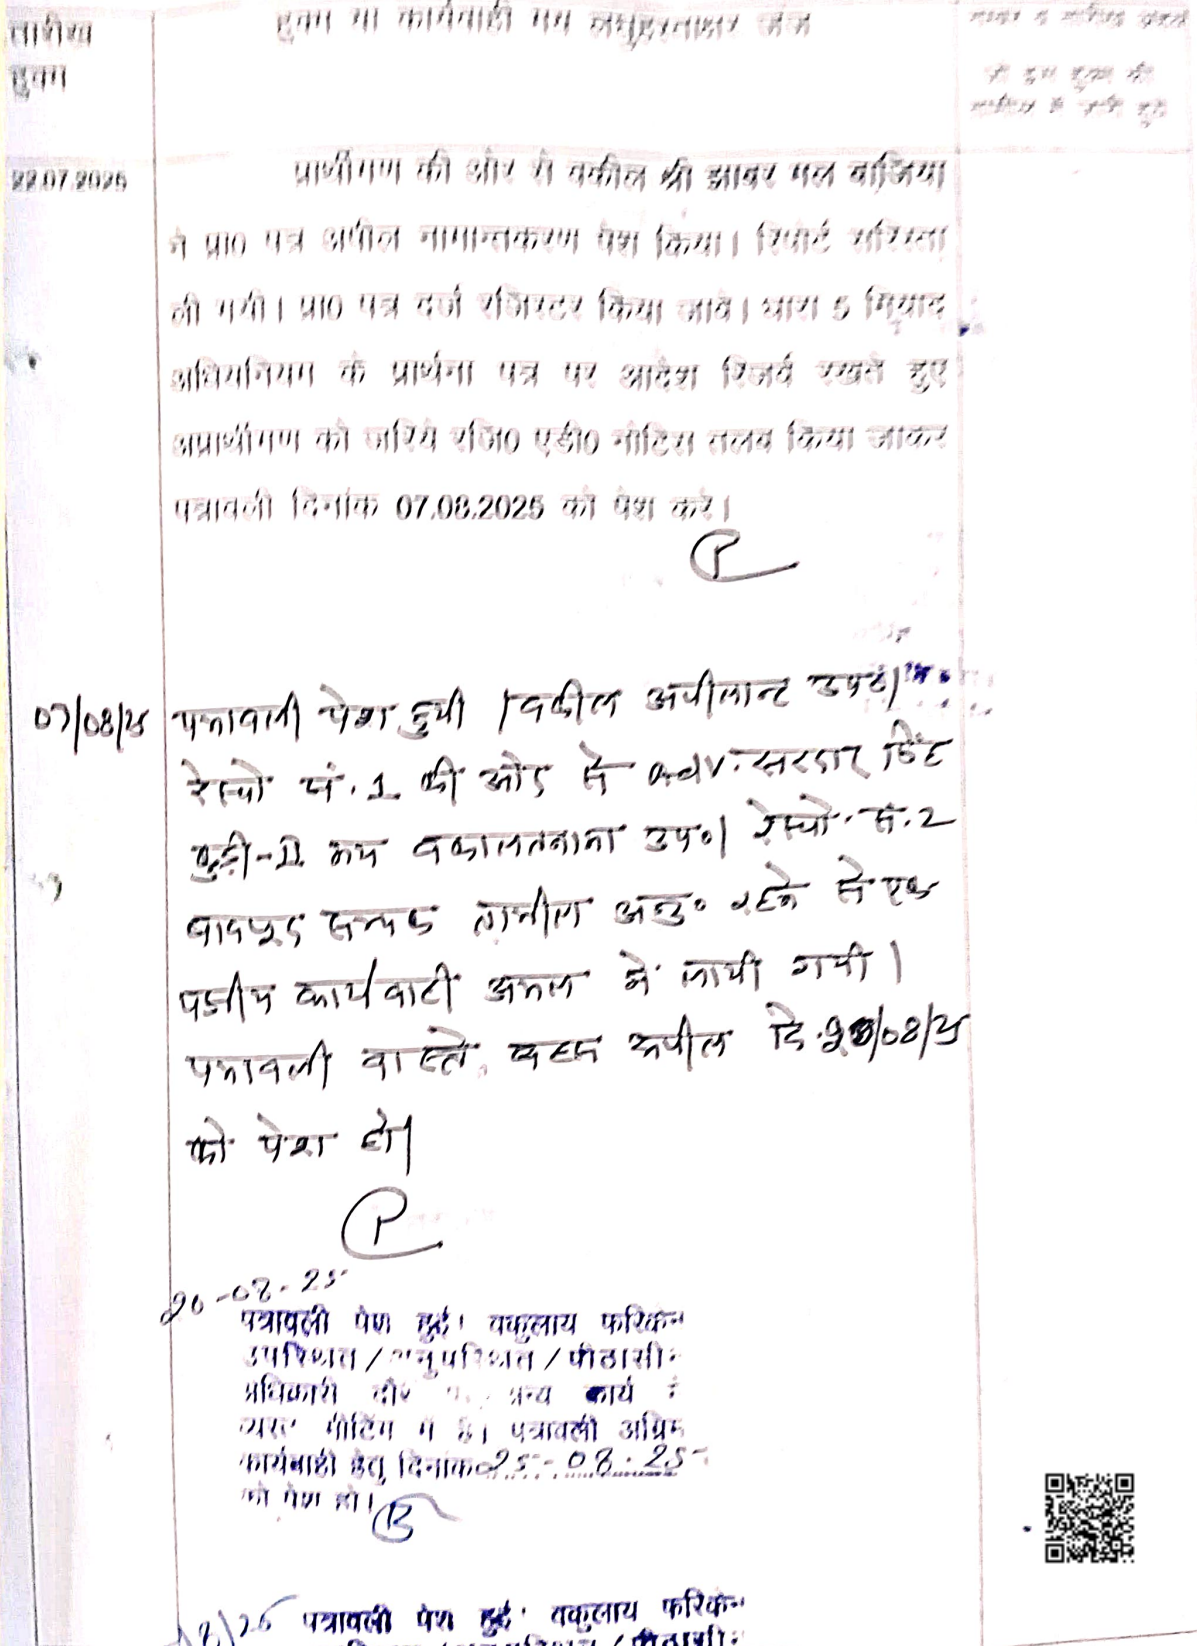 तारीख
हुक्म
हुक्म या कार्यवाही मय इनिशियल्स जज
22.07.2025
प्रार्थीगण की ओर से वकील श्री झाबर मल बाजिया
ने प्रा0 पत्र अपील नामान्तकरण पेश किया। रिपोर्ट सरिस्ता
ली गयी। प्रा0 पत्र दर्ज रजिस्टर किया जावे। धारा 5 मियाद
अधिधिनियम के प्रार्थना पत्र पर आदेश रिजर्व रखते हुए
अप्रार्थीगण को जरिये रजि0 एडी0 नोटिस तलब किया जाकर
पत्रावली दिनांक 07.08.2025 को पेश करे।
07/08/25 पत्रावली पेश हुयी। वकील अपीलान्ट उप०।
रेस्पो सं. 1 की ओर से adv. सरदार सिंह
मय वकालतनामा उप०। रेस्पो. सं. 2
बावजूद सम्यक तामील अनु० रहने से एक
पक्षीय कार्यवाही अमल में लायी गयी।
पत्रावली वास्ते बहस अपील दि. 20/08/25
को पेश हो।
20-08-25
पत्रावली पेश हुई। वकुलाय फरिकेन
उपस्थित/अनुपस्थित/पीठासीन
अधिकारी अन्य कार्य में
व्यस्त मीटिंग में है। पत्रावली अग्रिम
कार्यवाही हेतु दिनांक 25-08-25
को पेश हो।
पत्रावली पेश हुई वकुलाय फरिकेन